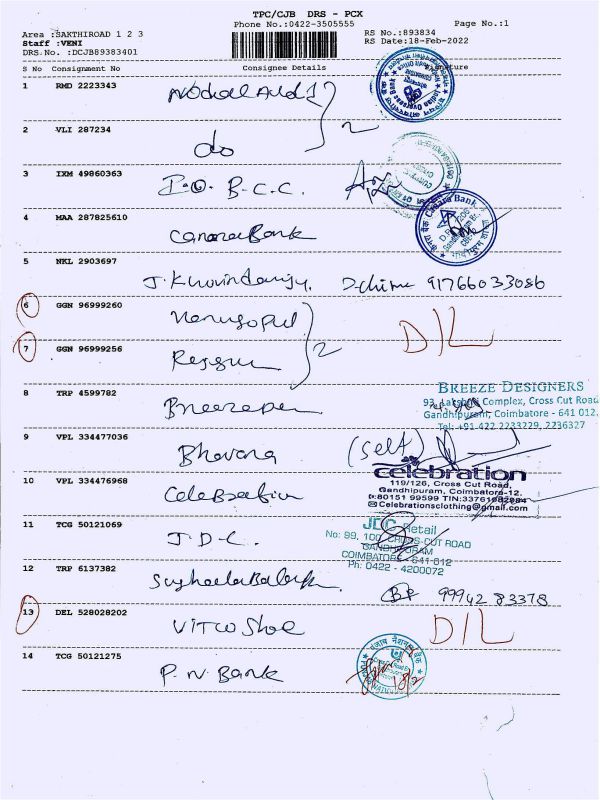 TPC/CJB DRS - PCX
Phone No.:0422-3505555
Page No.:1
Area :SAKTHIROAD 1 2 3
Staff :VENI
DRS.No. :DCJB89383401
RS No.:893834
RS Date:18-Feb-2022
S No Consignment No Consignee Details Signature
1 RMD 2223343
2 VLI 287234 do
2
3 IXM 49860363 I.O. B.C.C.
4 MAA 287825610 Canara Bank
केनरा बैंक Canara Bank
5 NKL 2903697 91766033086
6 GGN 96999260
7 GGN 96999256
2
D/L
8 TRP 4599782
BREEZE DESIGNERS
93, Lakshmi Complex, Cross Cut Road
Gandhipuram, Coimbatore - 641 012.
Tel: +91 422 2233229, 2236327
9 VPL 334477036 Bhavana (Self)
celebration
119/126, Cross Cut Road,
Gandhipuram, Coimbatore-12.
80151 99599 TIN:33761982984
Celebrationsclothing@gmail.com
10 VPL 334476968 Celebration
11 TCG 50121069 J.D.C.
JDC Retail
No: 99, 100, CROSS-CUT ROAD
GANDHIPURAM
COIMBATORE - 641 012
Ph: 0422 - 4200072
12 TRP 6137382 99942 83378
13 DEL 528028202 D/L
14 TCG 50121275 P. N. Bank
18/2